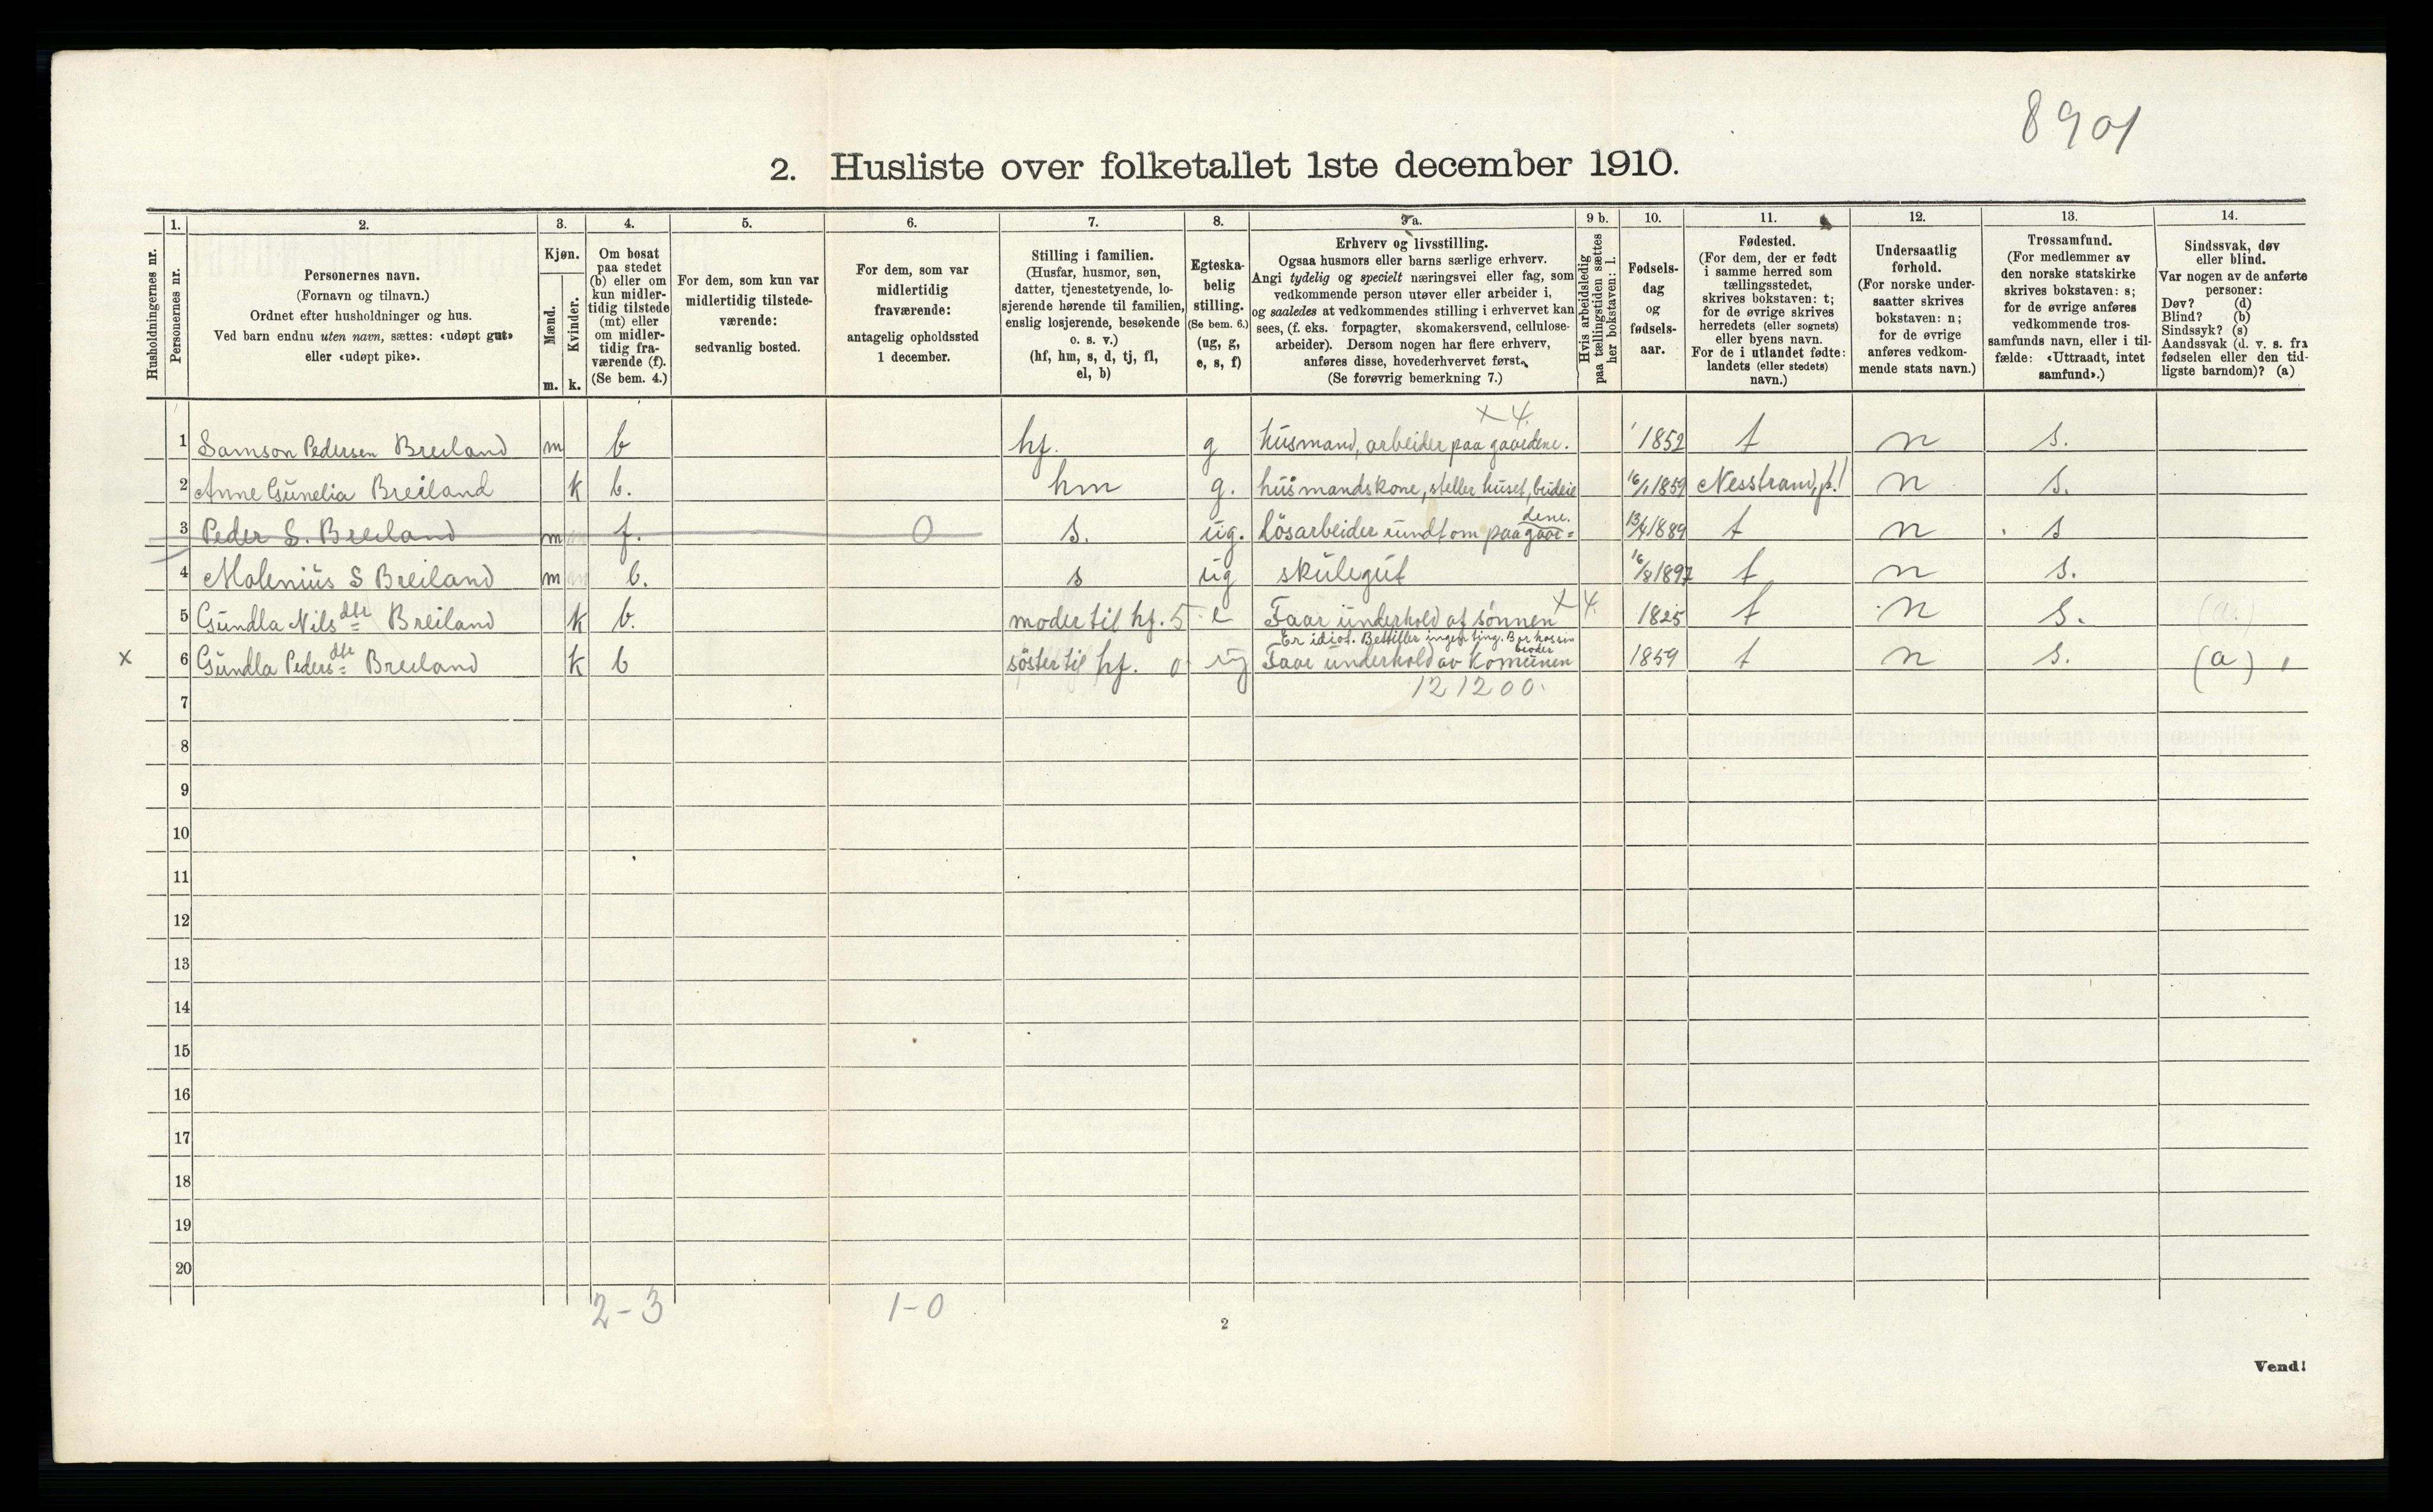 8901
2. Husliste over folketallet 1ste december 1910.
1. 2. 3. 4. 5. 6. 7. 8. 9 a. 9 b. 10. 11. 12. 13. 14.
Husholdningernes nr.
Personernes nr.
Personernes navn.
(Fornavn og tilnavn.)
Ordnet efter husholdninger og hus.
Ved barn endnu uten navn, sættes: «udøpt gut»
eller «udøpt pike».
Kjøn.
Mænd.
Kvinder.
m. k.
Om bosat
paa stedet
(b) eller om
kun midler-
tidig tilstede
(mt) eller
om midler-
tidig fra-
værende (f).
(Se bem. 4.)
For dem, som kun var
midlertidig tilstede-
værende:
sedvanlig bosted.
For dem, som var
midlertidig
fraværende:
antagelig opholdssted
1 december.
Stilling i familien.
(Husfar, husmor, søn,
datter, tjenestetyende, lo-
sjerende hørende til familien,
enslig losjerende, besøkende
o. s. v.)
(hf, hm, s, d, tj, fl,
el, b)
Egteska-
belig
stilling.
(Se bem. 6.)
(ug, g,
e, s, f)
Erhverv og livsstilling.
Ogsaa husmors eller barns særlige erhverv.
Angi tydelig og specielt næringsvei eller fag, som
vedkommende person utøver eller arbeider i,
og saaledes at vedkommendes stilling i erhvervet kan
sees, (f. eks. forpagter, skomakersvend, cellulose-
arbeider). Dersom nogen har flere erhverv,
anføres disse, hovederhvervet først.
(Se forøvrig bemerkning 7.)
Hvis arbeidsledig
paa tællingstiden sættes
her bokstaven: l.
Fødsels-
dag
og
fødsels-
aar.
Fødested.
(For dem, der er født
i samme herred som
tællingsstedet,
skrives bokstaven: t;
for de øvrige skrives
herredets (eller sognets)
eller byens navn.
For de i utlandet fødte:
landets (eller stedets)
navn.)
Undersaatlig
forhold.
(For norske under-
saatter skrives
bokstaven: n;
for de øvrige
anføres vedkom-
mende stats navn.)
Trossamfund.
(For medlemmer av
den norske statskirke
skrives bokstaven: s;
for de øvrige anføres
vedkommende tros-
samfunds navn, eller i til-
fælde: «Uttraadt, intet
samfund».)
Sindssvak, døv
eller blind.
Var nogen av de anførte
personer:
Døv? (d)
Blind? (b)
Sindssyk? (s)
Aandssvak (d. v. s. fra
fødselen eller den tid-
ligste barndom)? (a)
x 4.
1 Samson Pedersen Breiland m b hf. g husmand, arbeider paa gaardene. 1852 t n s.
2 Anne Gunelia Breiland k b. hm g. husmandskone, steller huset, budeie 16/1 1859 Nesstrand, p.! n s.
3 Peder S. Breiland m f. 0 s. ug. lösarbeider rundt om paa gaar= dene. 13/4 1889 t n s
4 Malenius S Breiland m b. s ug skulegut 16/8 1897 t n s.
5 Gundla Nils dtr = Breiland k b. moder til hf. 5 e Faar underhold af sønnen x 4. 1825 t n s. (a.)
Er idiot. Bestiller ingen ting. Bor hos sin broder
x 6 Gundla Peders dtr = Breiland k b söster til hf. 0 ug Faar underhold av Komunen 1859 t n s. (a)
7 121200.
8
9
10
11
12
13
14
15
16
17
18
19
20
2-3 1-0
2
Vend!